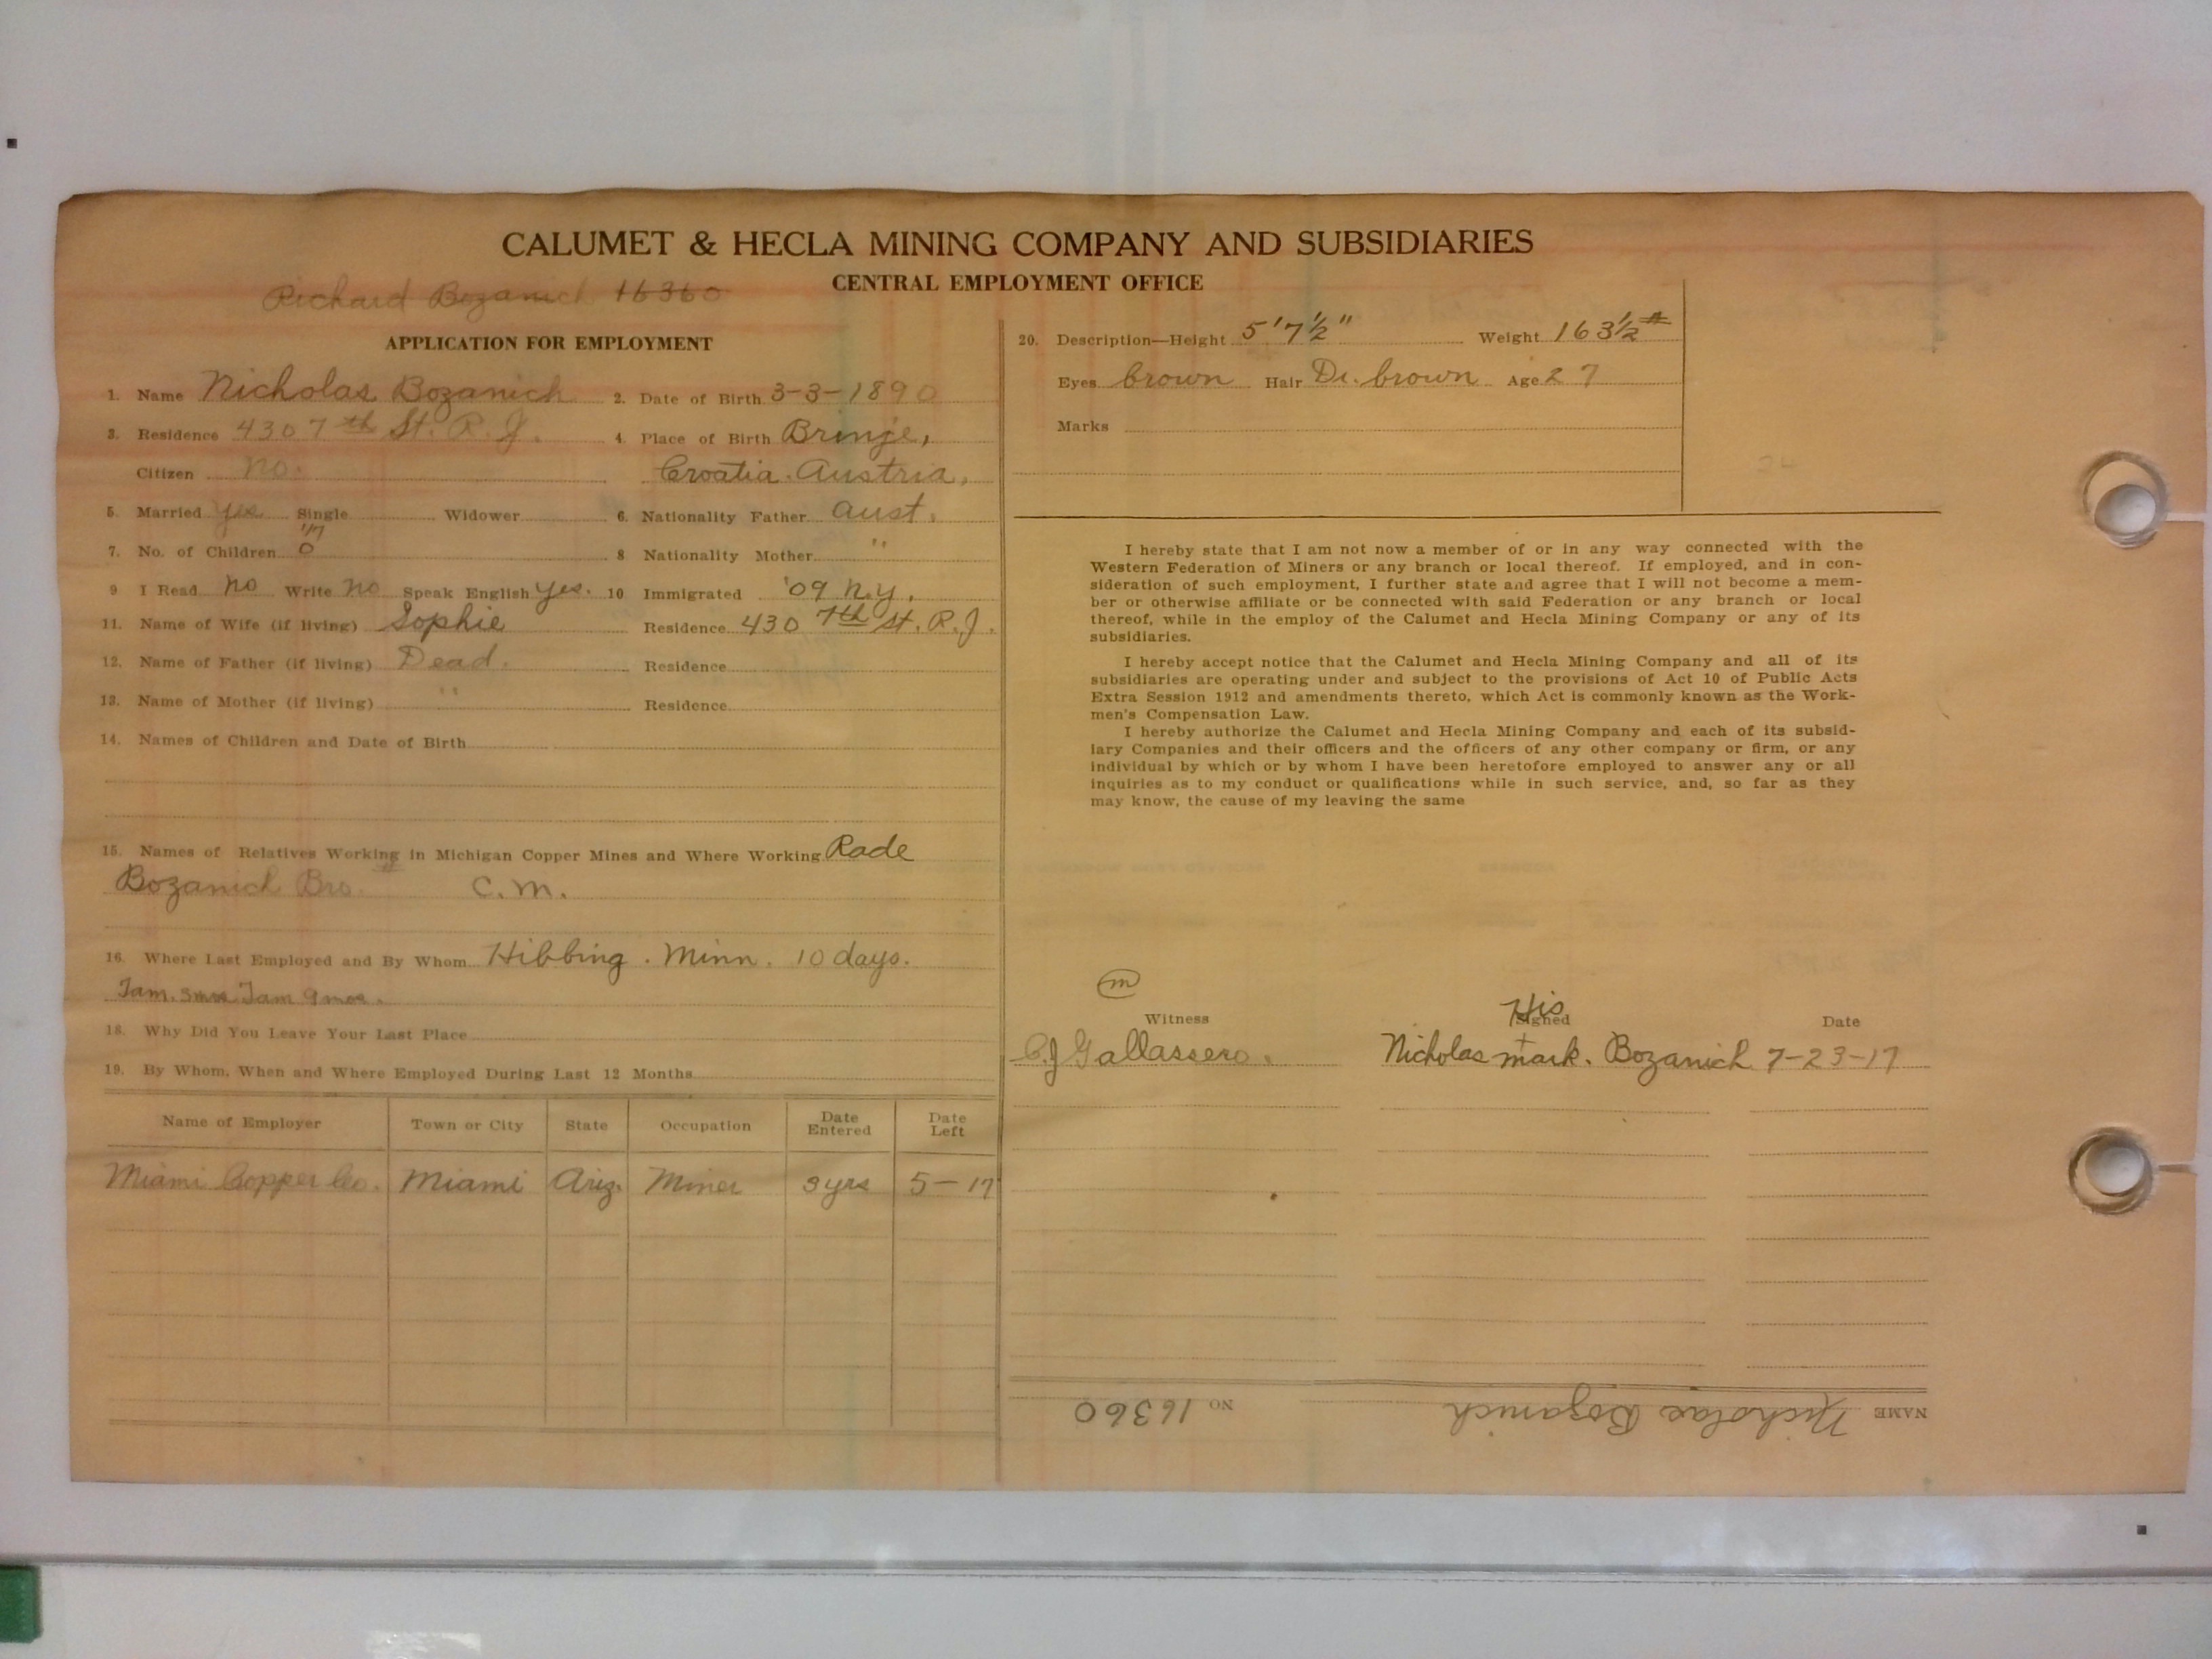 CALUMET & HECLA MINING COMPANY AND SUBSIDIARIES
CENTRAL EMPLOYMENT OFFICE
Richard Bozanich 16360
APPLICATION FOR EMPLOYMENT
1. Name Nicholas Bozanich 2. Date of Birth 3-3-1890
3. Residence 430 7th St. R. J. 4. Place of Birth Brinje,
Citizen no. Croatia. Austria.
5. Married yes Single Widower 6. Nationality Father Aust.
7. No. of Children 0 8 Nationality Mother "
9 I Read no Write no Speak English yes. 10 Immigrated '09 N.Y.
11. Name of Wife (if living) Sophie Residence 430 7th St. R. J.
12. Name of Father (if living) Dead. Residence
13. Name of Mother (if living) " Residence
14. Names of Children and Date of Birth
15. Names of Relatives Working in Michigan Copper Mines and Where Working Rade
Bozanich Bro. C. M.
16. Where Last Employed and By Whom Hibbing. Minn. 10 days.
Tam. 3mos Tam 9mos.
18. Why Did You Leave Your Last Place
19. By Whom, When and Where Employed During Last 12 Months
Name of Employer Town or City State Occupation Date Entered Date Left
Miami Copper Co. Miami Ariz. Miner 3 yrs 5-17
20. Description—Height 5'7½" Weight 163½#
Eyes brown Hair Dr. brown Age 27
Marks
I hereby state that I am not now a member of or in any way connected with the
Western Federation of Miners or any branch or local thereof. If employed, and in con-
sideration of such employment, I further state and agree that I will not become a mem-
ber or otherwise affiliate or be connected with said Federation or any branch or local
thereof, while in the employ of the Calumet and Hecla Mining Company or any of its
subsidiaries.
I hereby accept notice that the Calumet and Hecla Mining Company and all of its
subsidiaries are operating under and subject to the provisions of Act 10 of Public Acts
Extra Session 1912 and amendments thereto, which Act is commonly known as the Work-
men's Compensation Law.
I hereby authorize the Calumet and Hecla Mining Company and each of its subsid-
iary Companies and their officers and the officers of any other company or firm, or any
individual by which or by whom I have been heretofore employed to answer any or all
inquiries as to my conduct or qualifications while in such service, and, so far as they
may know, the cause of my leaving the same
m
His
Witness Signed Date
C. J. Gallassero. Nicholas + mark. Bozanich 7-23-17
NAME Nicholas Bozanich NO 16360